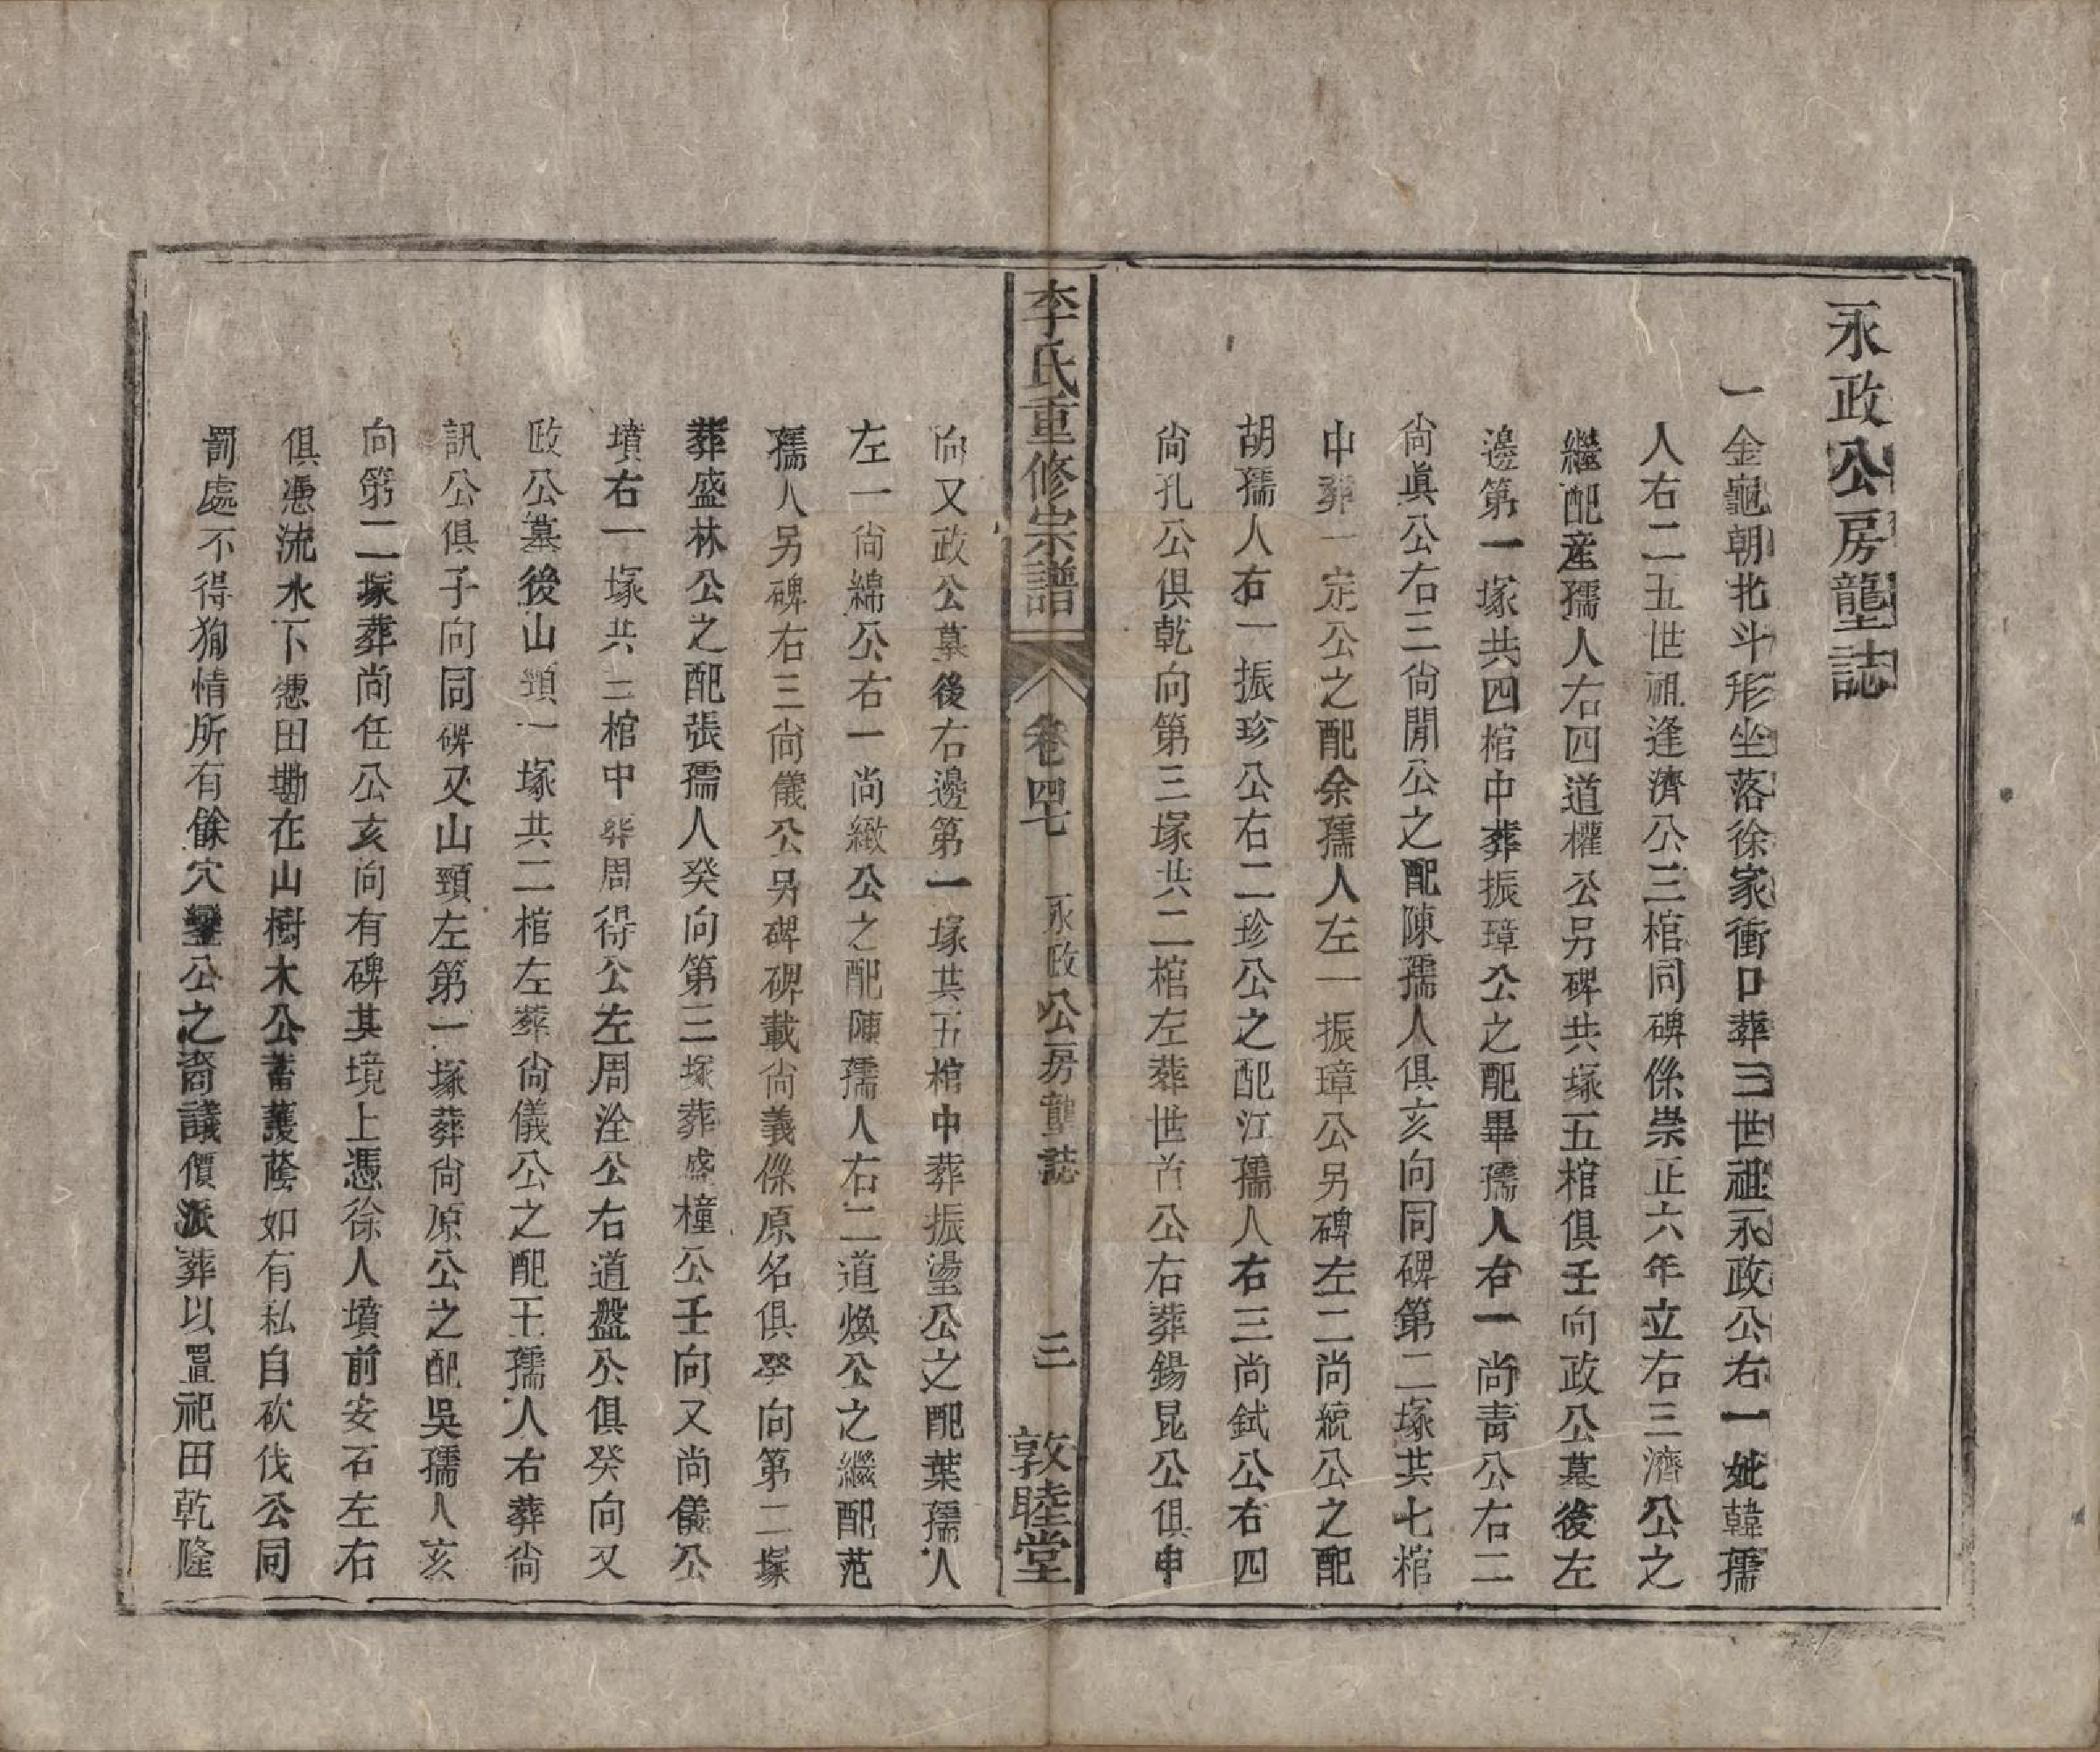 永政公房壟誌
一金龜朝北斗形坐落徐家衝口葬三世祖永政公右一妣韓孺
人右二五世祖逢濟公三棺同碑係崇正六年立右三濟公之
繼配產孺人右四道權公另碑共塚五棺俱壬向政公墓後左
邊第一塚共四棺中葬振璋公之配畢孺人右一尚青公右二
尚眞公右三尚閒公之配陳孺人俱亥向同碑第二塚其七棺
中葬一定公之配余孺人左一振璋公另碑左二尚統公之配
胡孺人右一振珍公右二珍公之配江孺人右三尚鉽公右四
尚孔公俱乾向第三塚共二棺左葬世首公右葬錫昆公俱申
李氏重修宗譜
卷四七
永政公房壟誌
三
敦睦堂
向又政公墓後右邊第一塚共五棺中葬振瀅公之配葉孺人
左一尚綿公右一尚緻公之配陳孺人右二道煥公之繼配范
孺人另碑右三尚儀公另碑碑載尚義係原名俱癸向第二塚
葬盛林公之配張孺人癸向第三塚葬盛橦公壬向又尚儀公
墳右一塚共三棺中葬周得公左周洤公右道盤公俱癸向又
政公墓後山頸一塚共二棺左葬尚儀公之配王孺人右葬尚
訊公俱子向同碑又山頸左第一塚葬尚原公之配吳孺人亥
向第二塚葬尚任公亥向有碑其境上憑徐人墳前安石左右
俱憑流水下憑田墈在山樹木公蓄護蔭如有私自砍伐公同
罰處不得狥情所有餘穴鑾公之裔議價派葬以置祀田乾隆